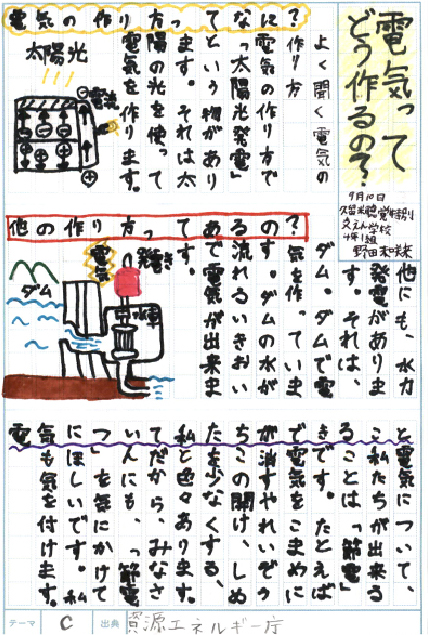 電気って
どう作るの?
9月10日
久留米聴覚特別
支えん学校
4年1組
電気の作り方ってなに?
よく聞く電気の
作り方
電気の作り方で
「太陽光発電」
という物があり
ます。それは太
陽の光を使って
電気を作ります。
太陽光
電流
他の作り方ってあるの?
他にも、水力
発電がありま
す。それは、
ダム。ダムで電
気を作っていま
す。ダムの水が
流れるいきおい
で電気が出来ま
す。
電気
発電き
ダム
水車
電気について私たちができること
電気について、
私たちが出来る
ことは「節電」
です。たとえば
電気をこまめに
消すやれいぞう
この開け、しめ
を少なくする、
と色々あります。
だから、みなさ
んにも、「節電
」を気にかけて
ほしいです。私
も気を付けます。
テーマ
C
出典
資源エネルギー庁